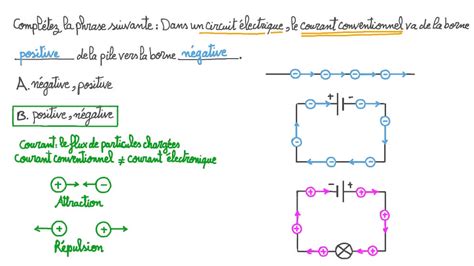 Complétez la phrase suivante : Dans un circuit électrique, le courant conventionnel va de la borne
positive de la pile vers la borne négative.
A. négative, positive
B. positive, négative
Courant : le flux de particules chargées
Courant conventionnel ≠ courant électronique
+ -
Attraction
+ +
Répulsion
- - - -
+ -
- -
- -
- - -
- +
+ +
+ +
+ +